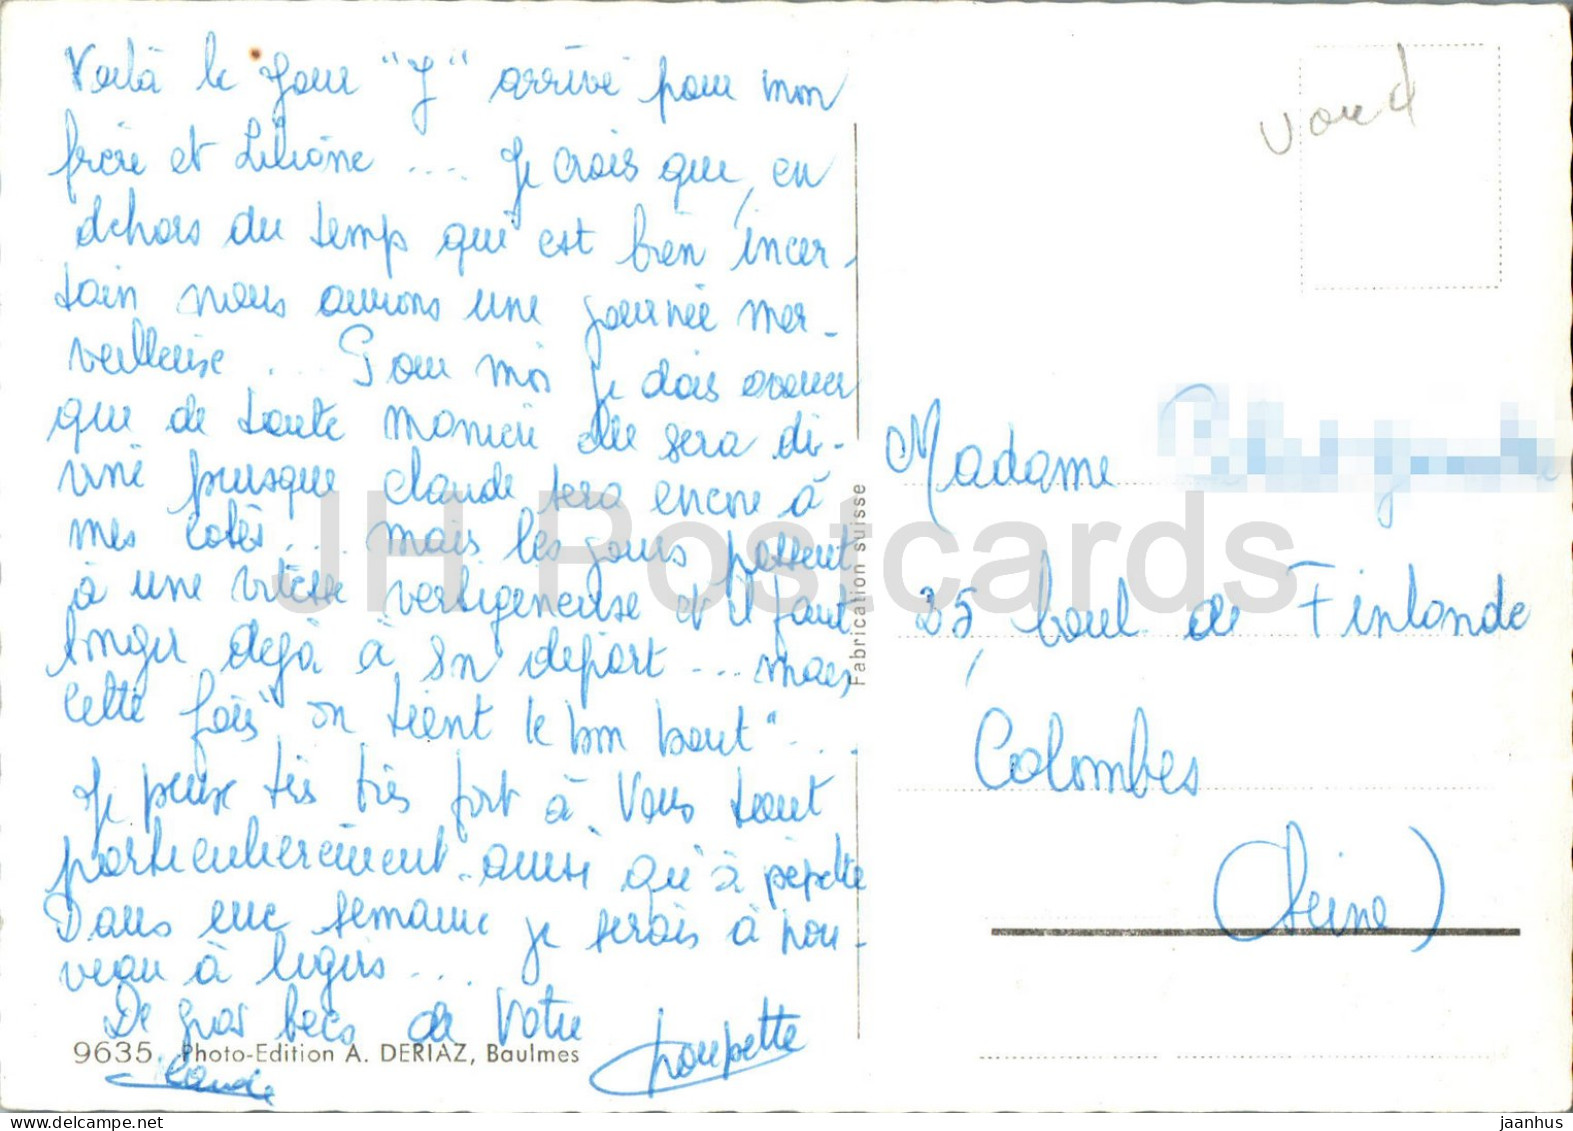 Voilà le Jour "J" arrivé pour mon
frère et Liliane .... Je crois que, en
dehors du temp qui est bien incer-
tain nous aurons une journée mer-
veilleuse ... Pour moi je dois avouer
que de toute manière elle sera di-
vine puisque Claude sera encore à
mes cotés ... mais les jours passent
à une vitesse vertigeneuse et il faut
songer dejà à son départ ... mais
cette fois "on tient le bon bout" ...
Je pense très très fort à Vous tout
particulierement.. aussi qu'à pépette
Dans une semaine je serais à nou-
veau à
De gros becs de Votre
poupette
Claude
9635 Photo-Edition A. DERIAZ, Baulmes
Fabrication suisse
vaud
Madame
35, boul. de Finlande
Colombes
(Seine)
JH Postcards
www.delcampe.net
jaanhus